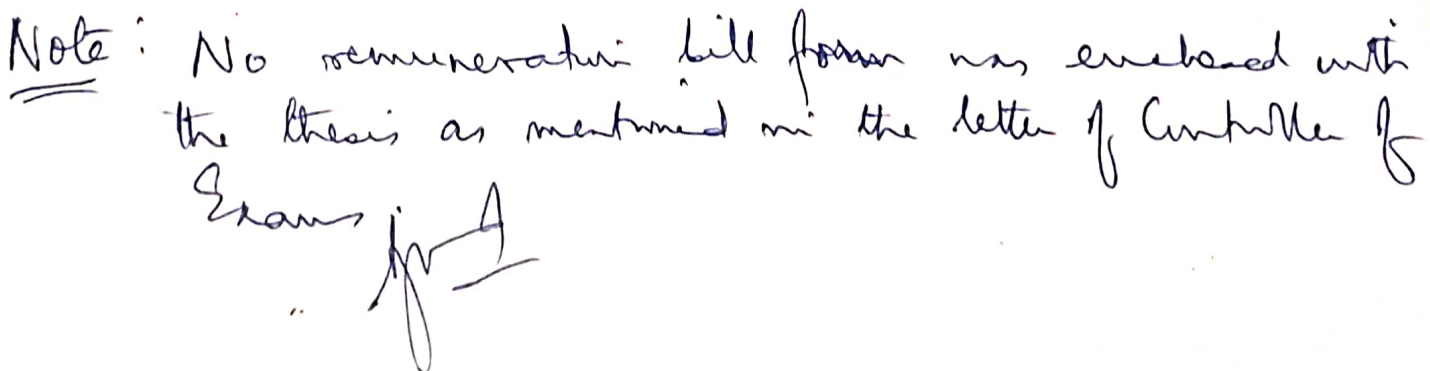 Note: No remuneration bill form was enclosed with
the thesis as mentioned in the letter of Controller of
Exams